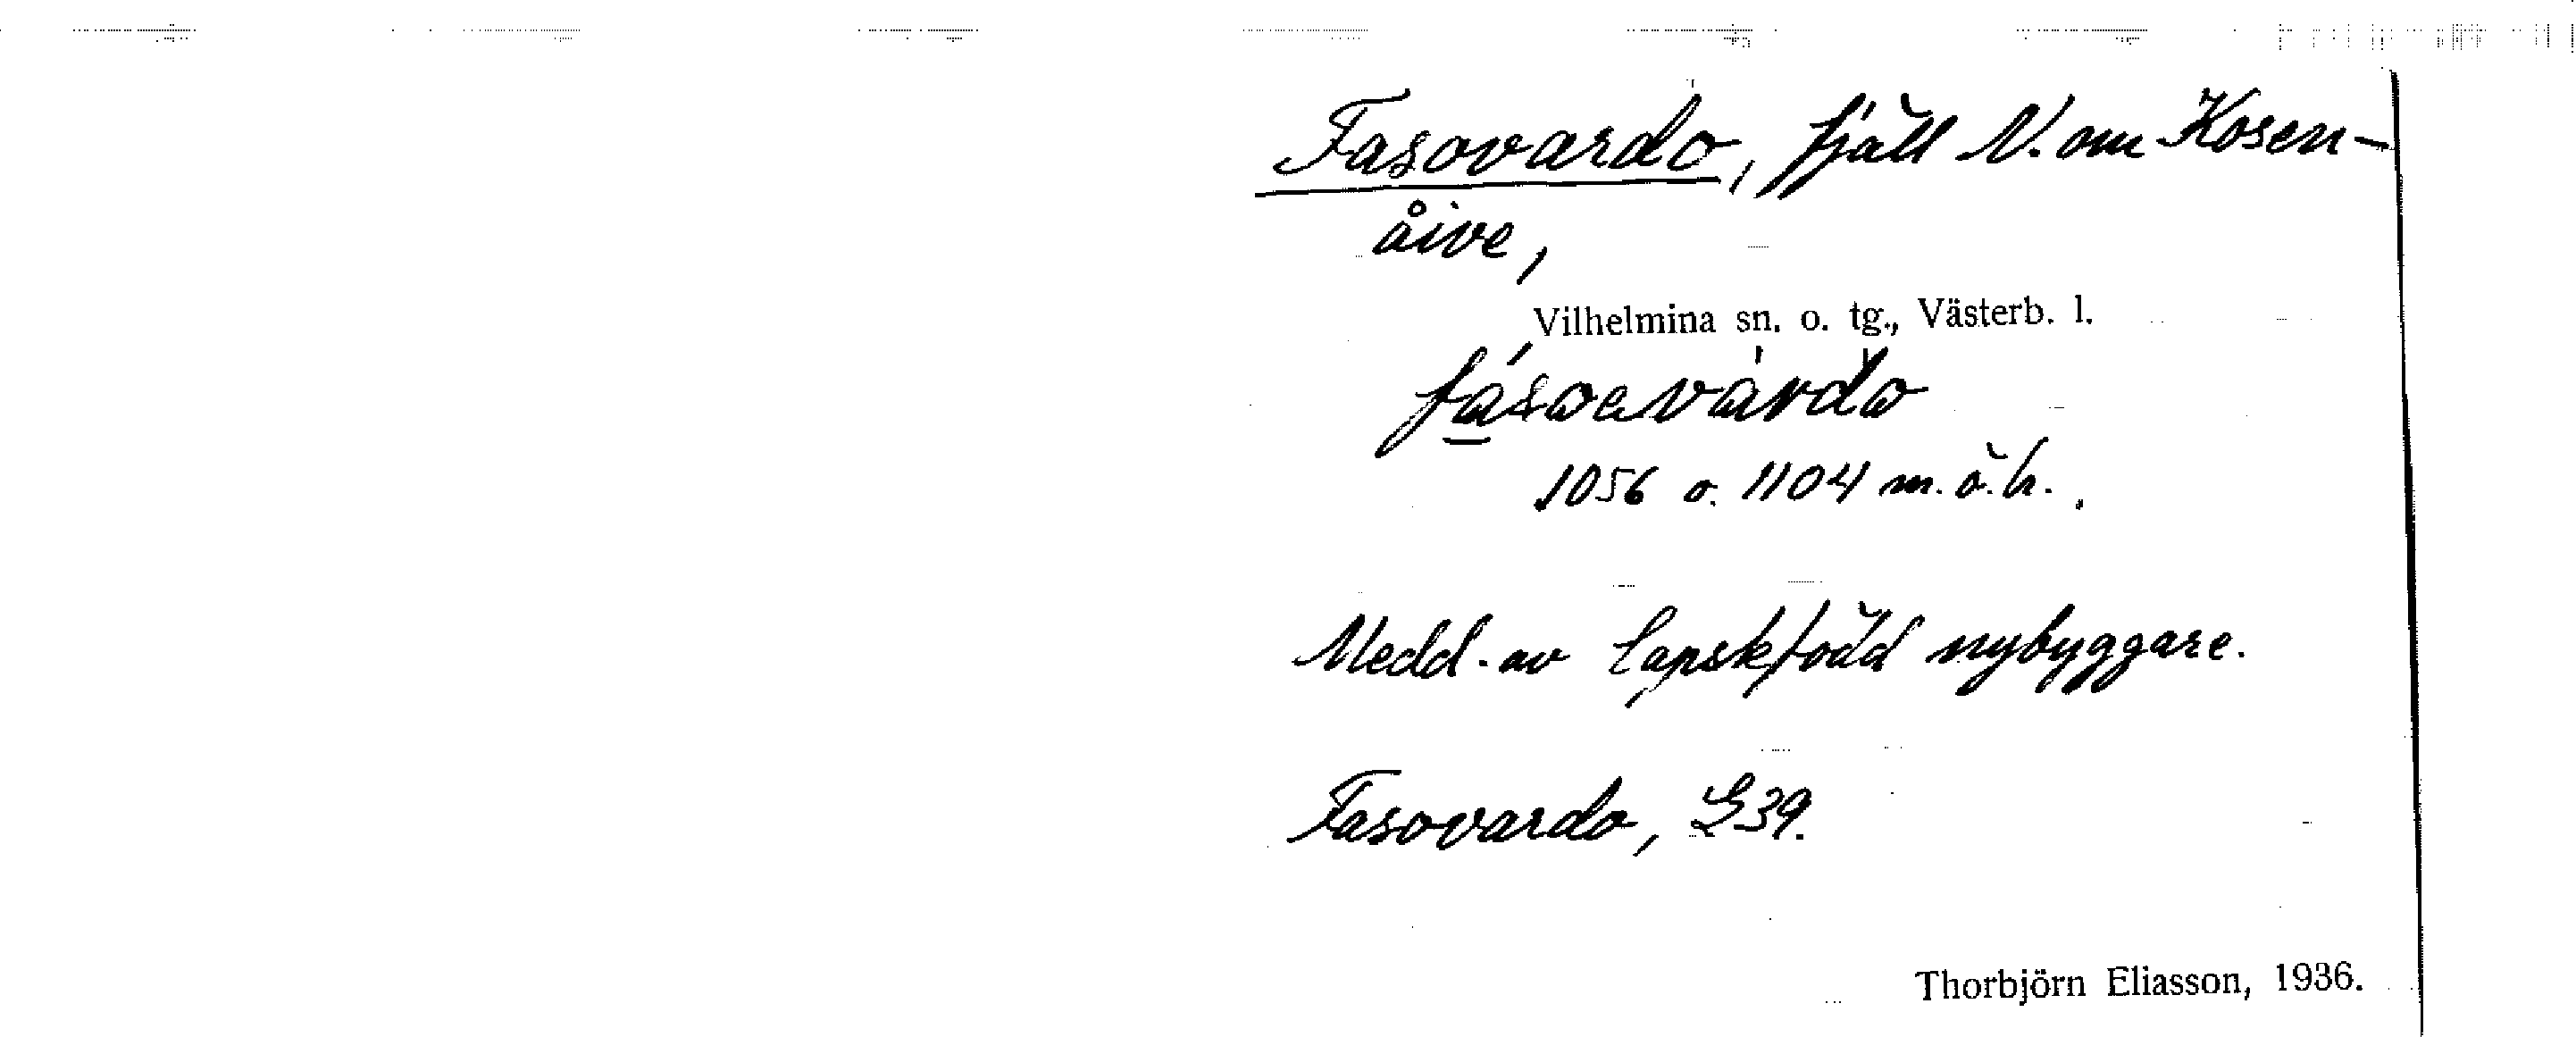 Fasovardo, fjäll N. om Kosen-
åive,
Vilhelmina sn. o. tg., Västerb. l.
fásoavàrdo
1056 o. 1104 m.ö.h.
Medd. av lapskfödd nybyggare.
Fasovardo, G39.
Thorbjörn Eliasson, 1936.